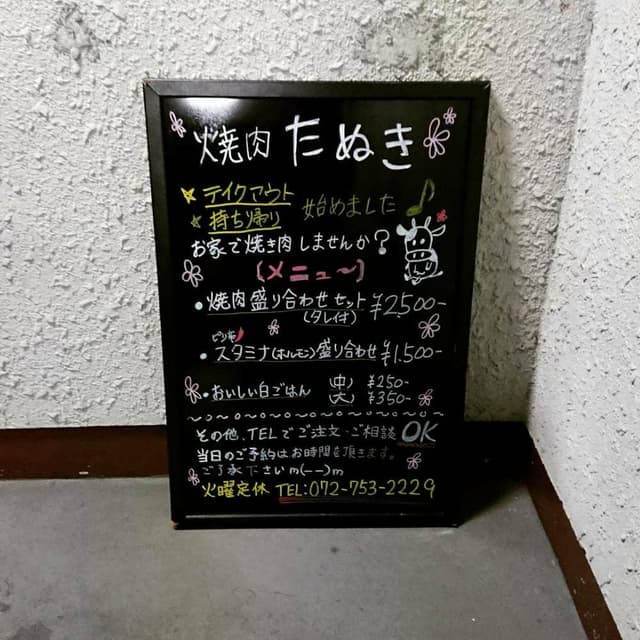 焼肉 たぬき
テイクアウト
持ち帰り 始めました
お家で焼き肉しませんか?
(メニュ〜)
・焼肉盛り合わせセット ¥2500-
(タレ付)
ピリ辛
・スタミナ(ホルモン)盛り合わせ ¥1,500-
・おいしい白ごはん (中) ¥250-
(大) ¥350-
その他、TELでご注文・ご相談 OK
当日のご予約はお時間を頂きます。
ご了承下さいm(--)m
火曜定休 TEL:072-753-2229